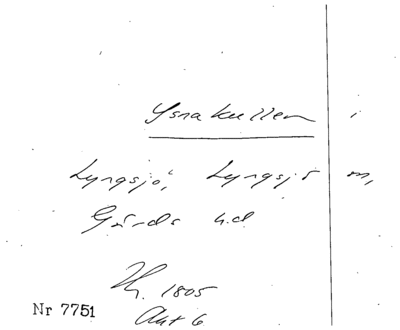 Ysnakullen i
Lyngsjö, Lyngsjö sn,
Gärds hd
1805
Nr 7751 Akt 6